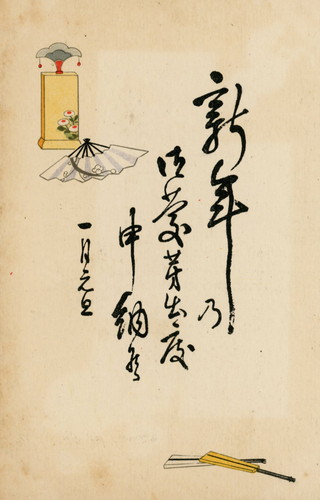 新年乃
御慶芽出度
申納候
一月元旦